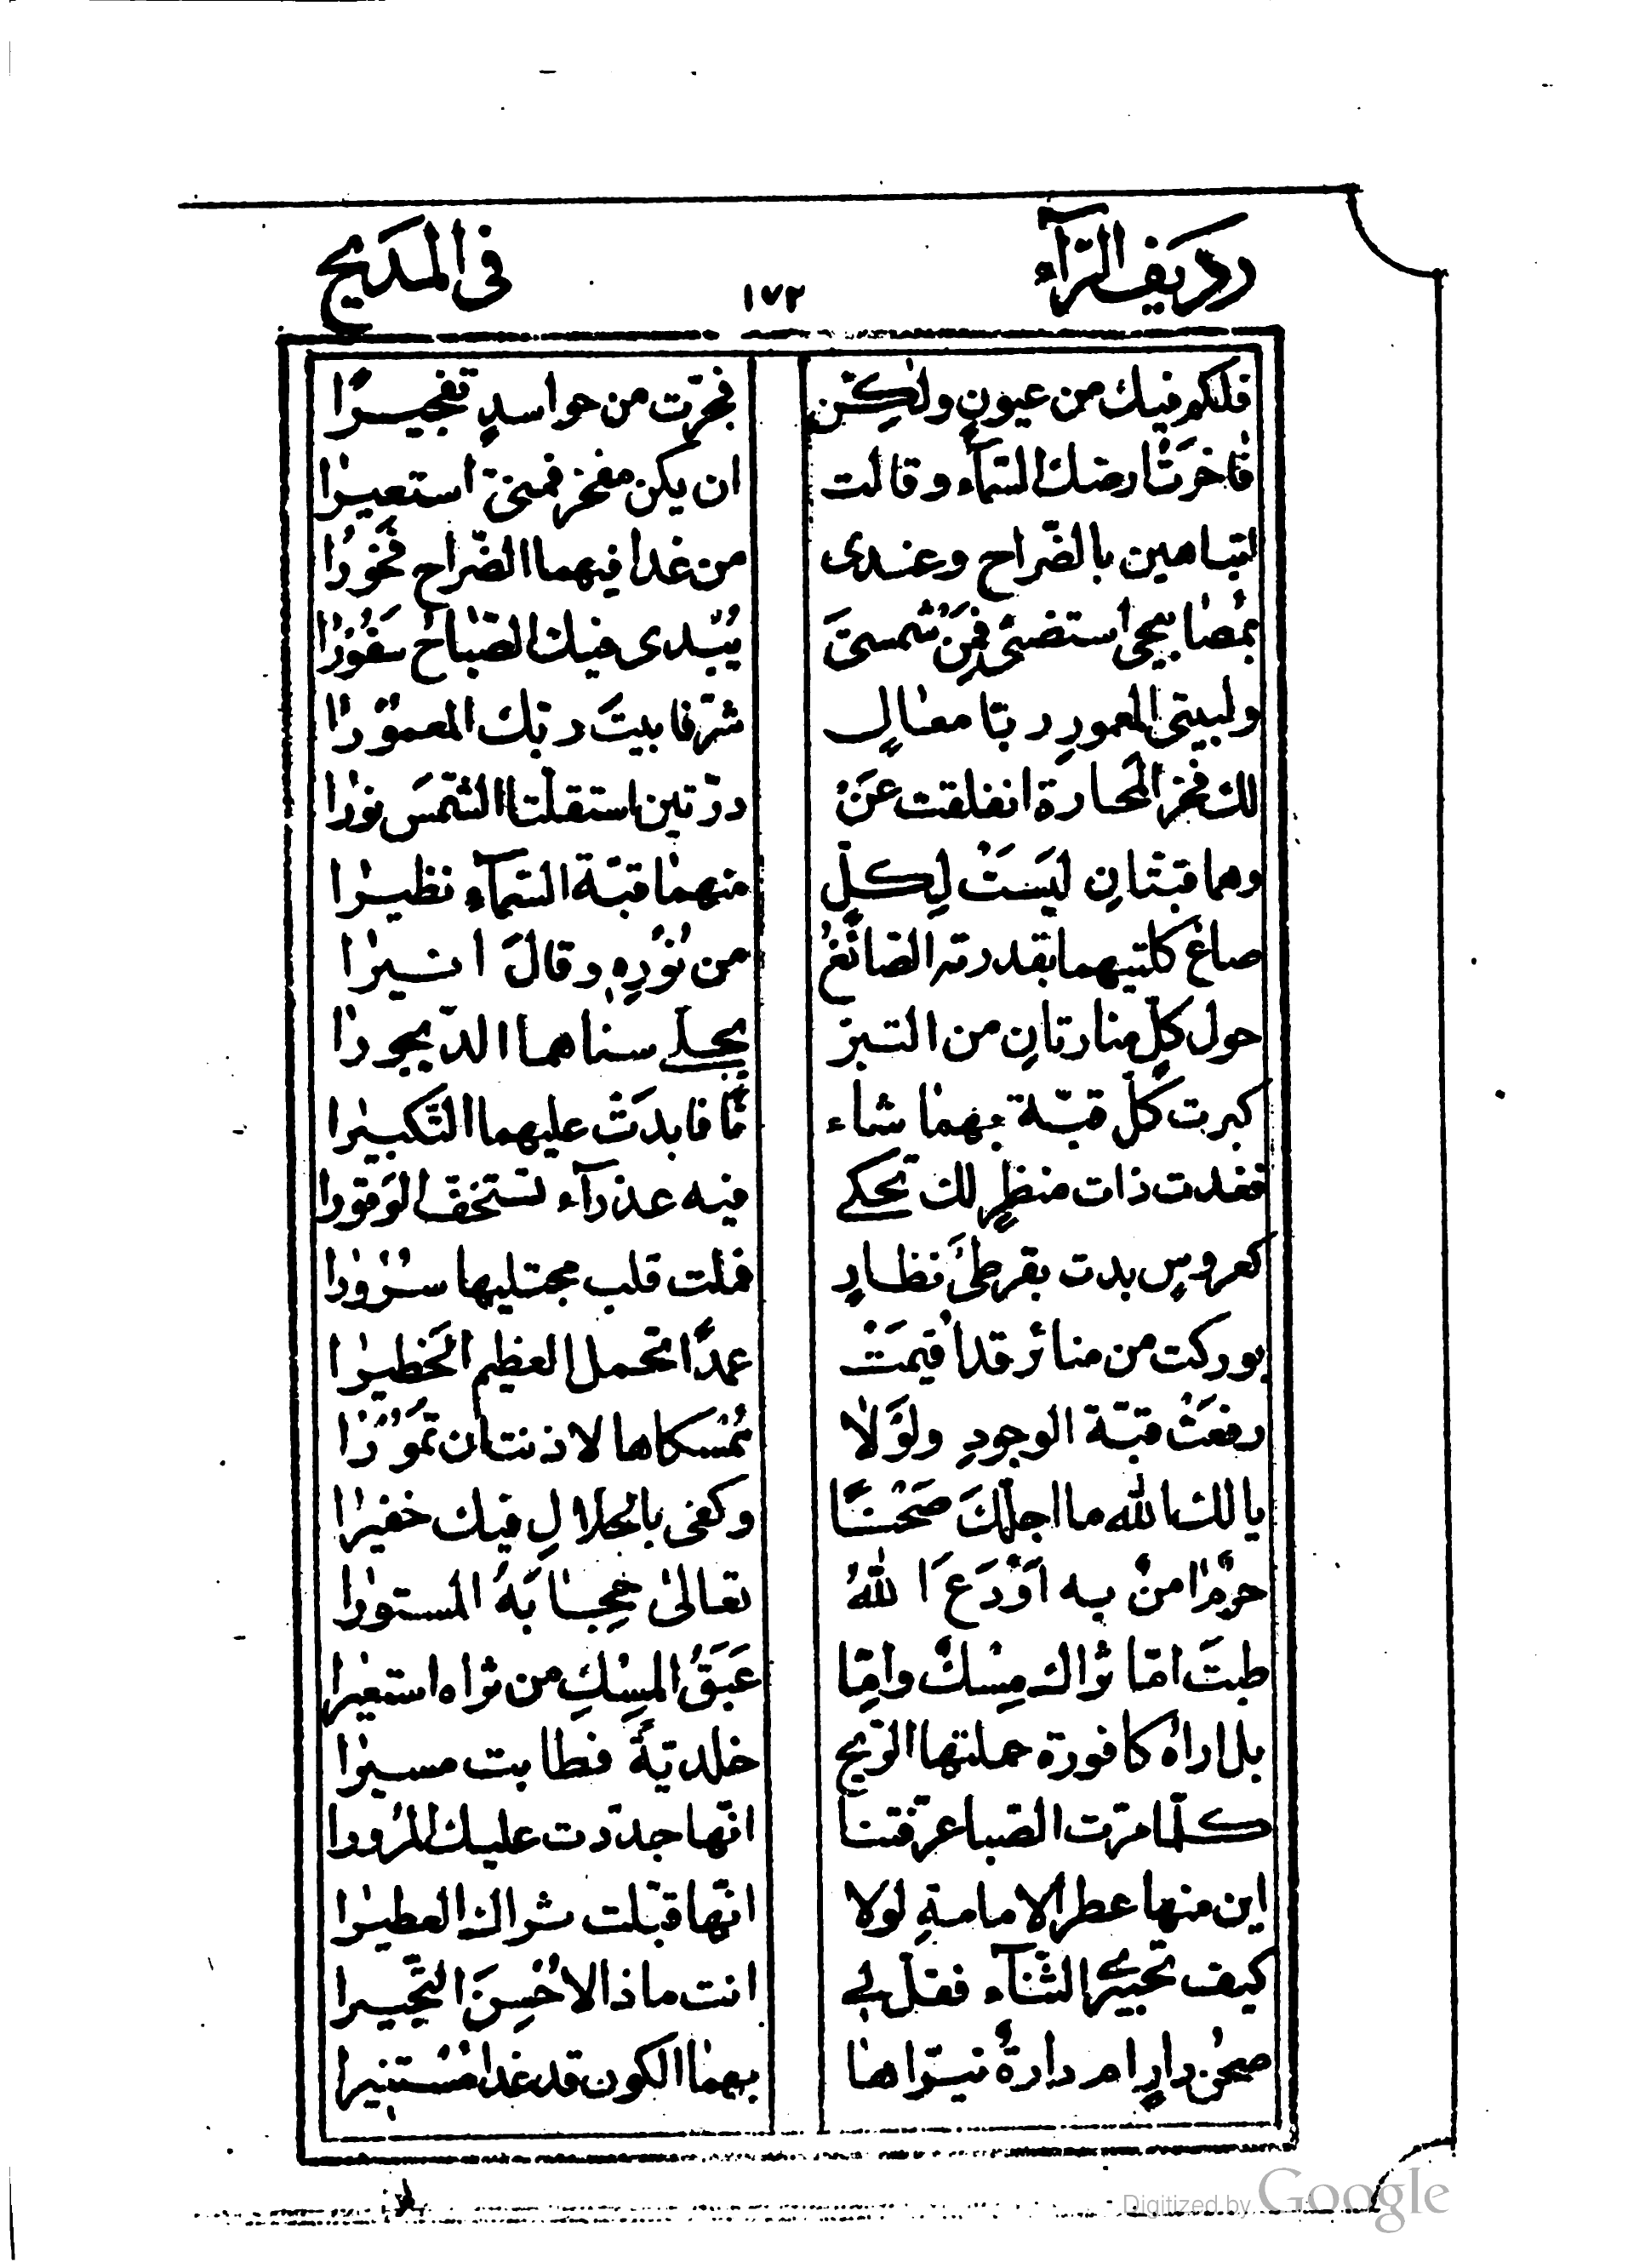 رديف الرآء ١٧٢ فى المديح
فلكم فيك من عيونٍ ولٰكِنْ فجّرت من حواسدٍ تفجيرًا
فاخَرَتْ ارضك السّمآء وقالت ان يكن مفخر فمنىّ استعيرا
اتباهين بالضّراح وعندى من غدا فيهما الضّراح فَخُورًا
بمصابيحى استضئى فمِنْ شمسىَ يُبْدى فيك الصّباحُ سفُورًا
ولبيتى المعمورِ ربّا معالٍ شرّفا بيتَ ربّك المعمورا
لك فخر المَحارة انفلقت عَنْ درّتين استقلّتا الشّمسَ نورا
وهما قبّتانِ ليسَتْ لِكلٍّ منهما قبّة السّمآء نظيرا
صاغ كلتيهما بقدرته الصّائغُ من نُورِهِ وقالَ انيرا
حول كلٍّ منارتانِ من التبر يجلى سناهما الدّيجورا
كبرت كلّ قبّة بهما شاء نًا فابدَتْ عليهما التّكبيرا
فغدت ذات منظرٍ لك تحكى فيه عذرآء تستخفّ الوَقورا
كعروسٍ بدت بقرطَىْ نظارٍ فملت قلب مجتليها سرُورا
بوركت من منائر قد اُقيمَتْ عمدًا تحمل العظيم الخَطيرا
رفعَتْ قبّة الوجودِ ولَوْلا مُمْسكاها لاذنتان تَمُورًا
يا لك الله ما اجلّكَ صَحْنًا وكفى بالجلالِ فيك خفيرا
حرمٌ امنٌ به اَوْدَعَ اللهُ تعالىٰ حِجابَهُ المستورا
طبتَ امّا ثراك مِسْكٌ وامّا عَبَقُ المسْكِ من ثراه استعيرا
بل اراهُ كافورة حملتها الرّيح خلديّةً فطابت مسيرا
كلّما مرّت الصّبا عرّفتنا انّها جدّدت عليك المرُورا
اين منها عطر الامامةِ لولا انّها قبّلت ثراك العطيرا
كيف تحبيرى الثّنآء فقل لى انت ماذا لاُحْسِنَ التّحبيرا
صحنُ دارٍ ام دارةٌ نيّراها بهما الكون قد غدا مُسْتنيرا
Digitized by Google